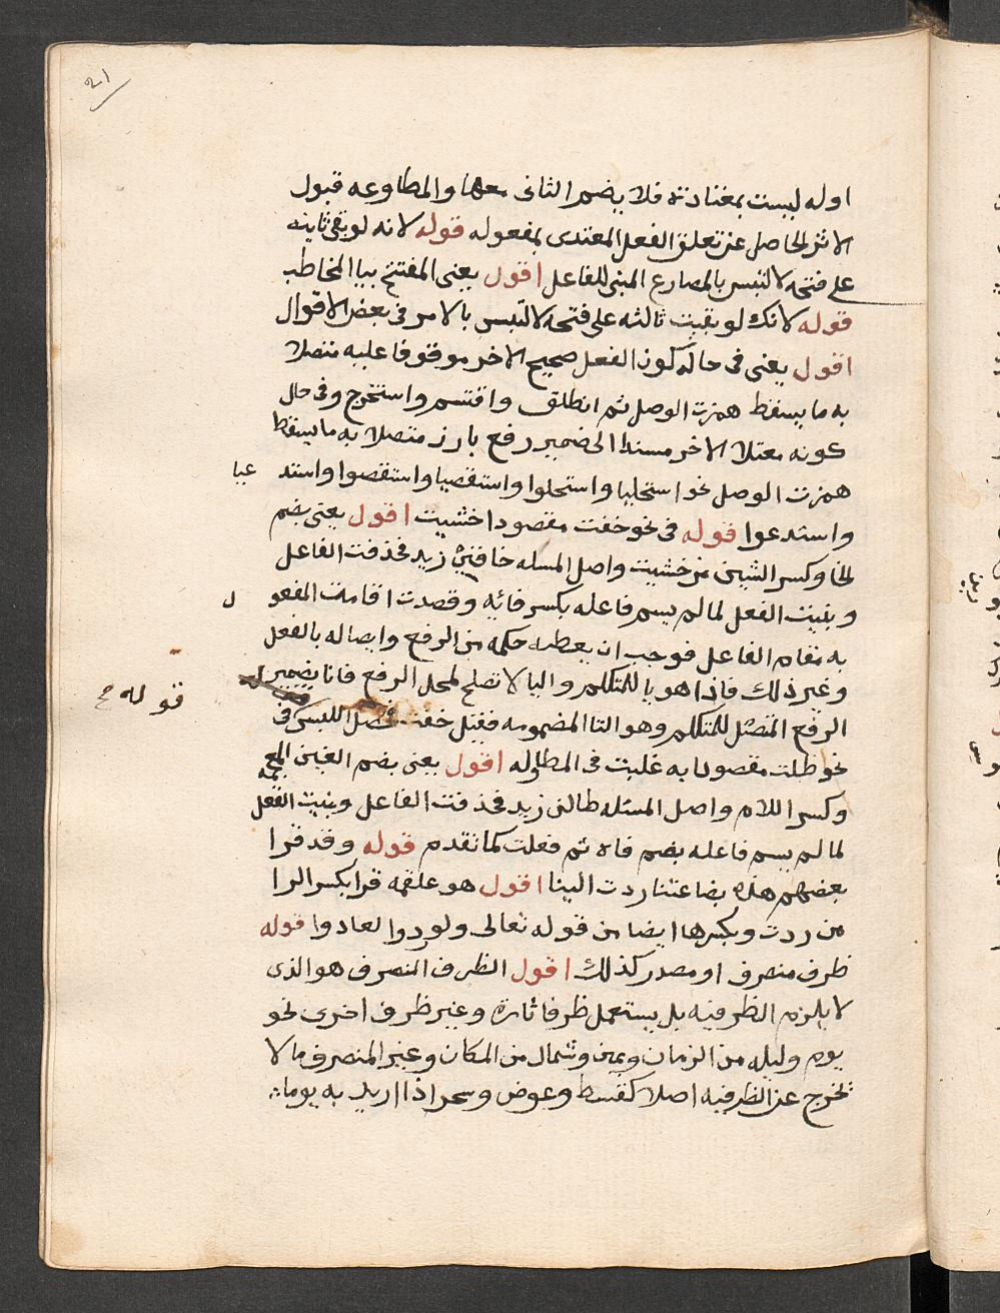 ٢١
اوله ليست بمعتادة فلا يضم الثانى معها والمطاوعه قبول
الاثر الحاصل عن تعلق الفعل المعتدى بمفعوله قوله لانه لو بقى ثانيه
على فتحه لالتبس بالمصارع المبنى للفاعل اقول يعنى المفتتح بيا المخاطب
قوله لانك لو بقيت ثالثه على فتحه لالتبس بالامر فى بعض الاقوال
اقول يعنى فى حاله كون الفعل صحيح الاخر موقوفا عليه متصلا
به ما يسقط همزت الوصل ثم انطلق واقتسم واستخرج وفى حال
كونه معتلا الاخر مسندا الى ضمير رفع بارز متصلا به ما يسقط
همزت الوصل نحو استحليا واستحلوا واستقصيا واستقصوا واستد عيا
واستدعوا قوله فى نحو خفت مقصودا خشيت اقول يعنى بضم
الخا وكسر الشين من خشيت واصل المسله خافنى زيد فحذفت الفاعل
وبنيت الفعل لما لم يسم فاعله بكسر فائه وقصدت اقامت المفعو ل
به مقام الفاعل فوجب ان يعطيه حكمه من الرفع وايصاله بالفعل
وغير ذلك فاذا هو يا المتكلم واليا لا تصلح لمحل الرفع فاتا بضمير
الرفع المتصل للمتكلم وهو التا المضمومه فقيل خفت فحصل اللبس فى
قوله صح
نحو طلت مقصودا به غلبت فى المطاوله اقول يعنى بضم الغين المعجمه
وكسر اللام واصل المسئله طالنى زيد فحذفت الفاعل وبنيت الفعل
لما لم يسم فاعله بضم فاه ثم فعلت كما تقدم قوله وقد قرا
بعضهم هذه بضاعتنا ردت الينا اقول هو علقمه قرا بكسر الرا
من ردت وبكسرها ايضا من قوله تعالى ولو ردوا لعادوا قوله
ظرف متصرف او مصدر كذلك اقول الظرف المتصرف هو الذى
لا يلزم الظرفيه بل يستعمل ظرفا تارة وغير ظرف اخرى نحو
يوم وليله من الزمان ويمين وشمال من المكان وغير المتصرف ما لا
تخرج عن الظرفيه اصلا كقسط وعوض وسحر اذا اريد به يوما